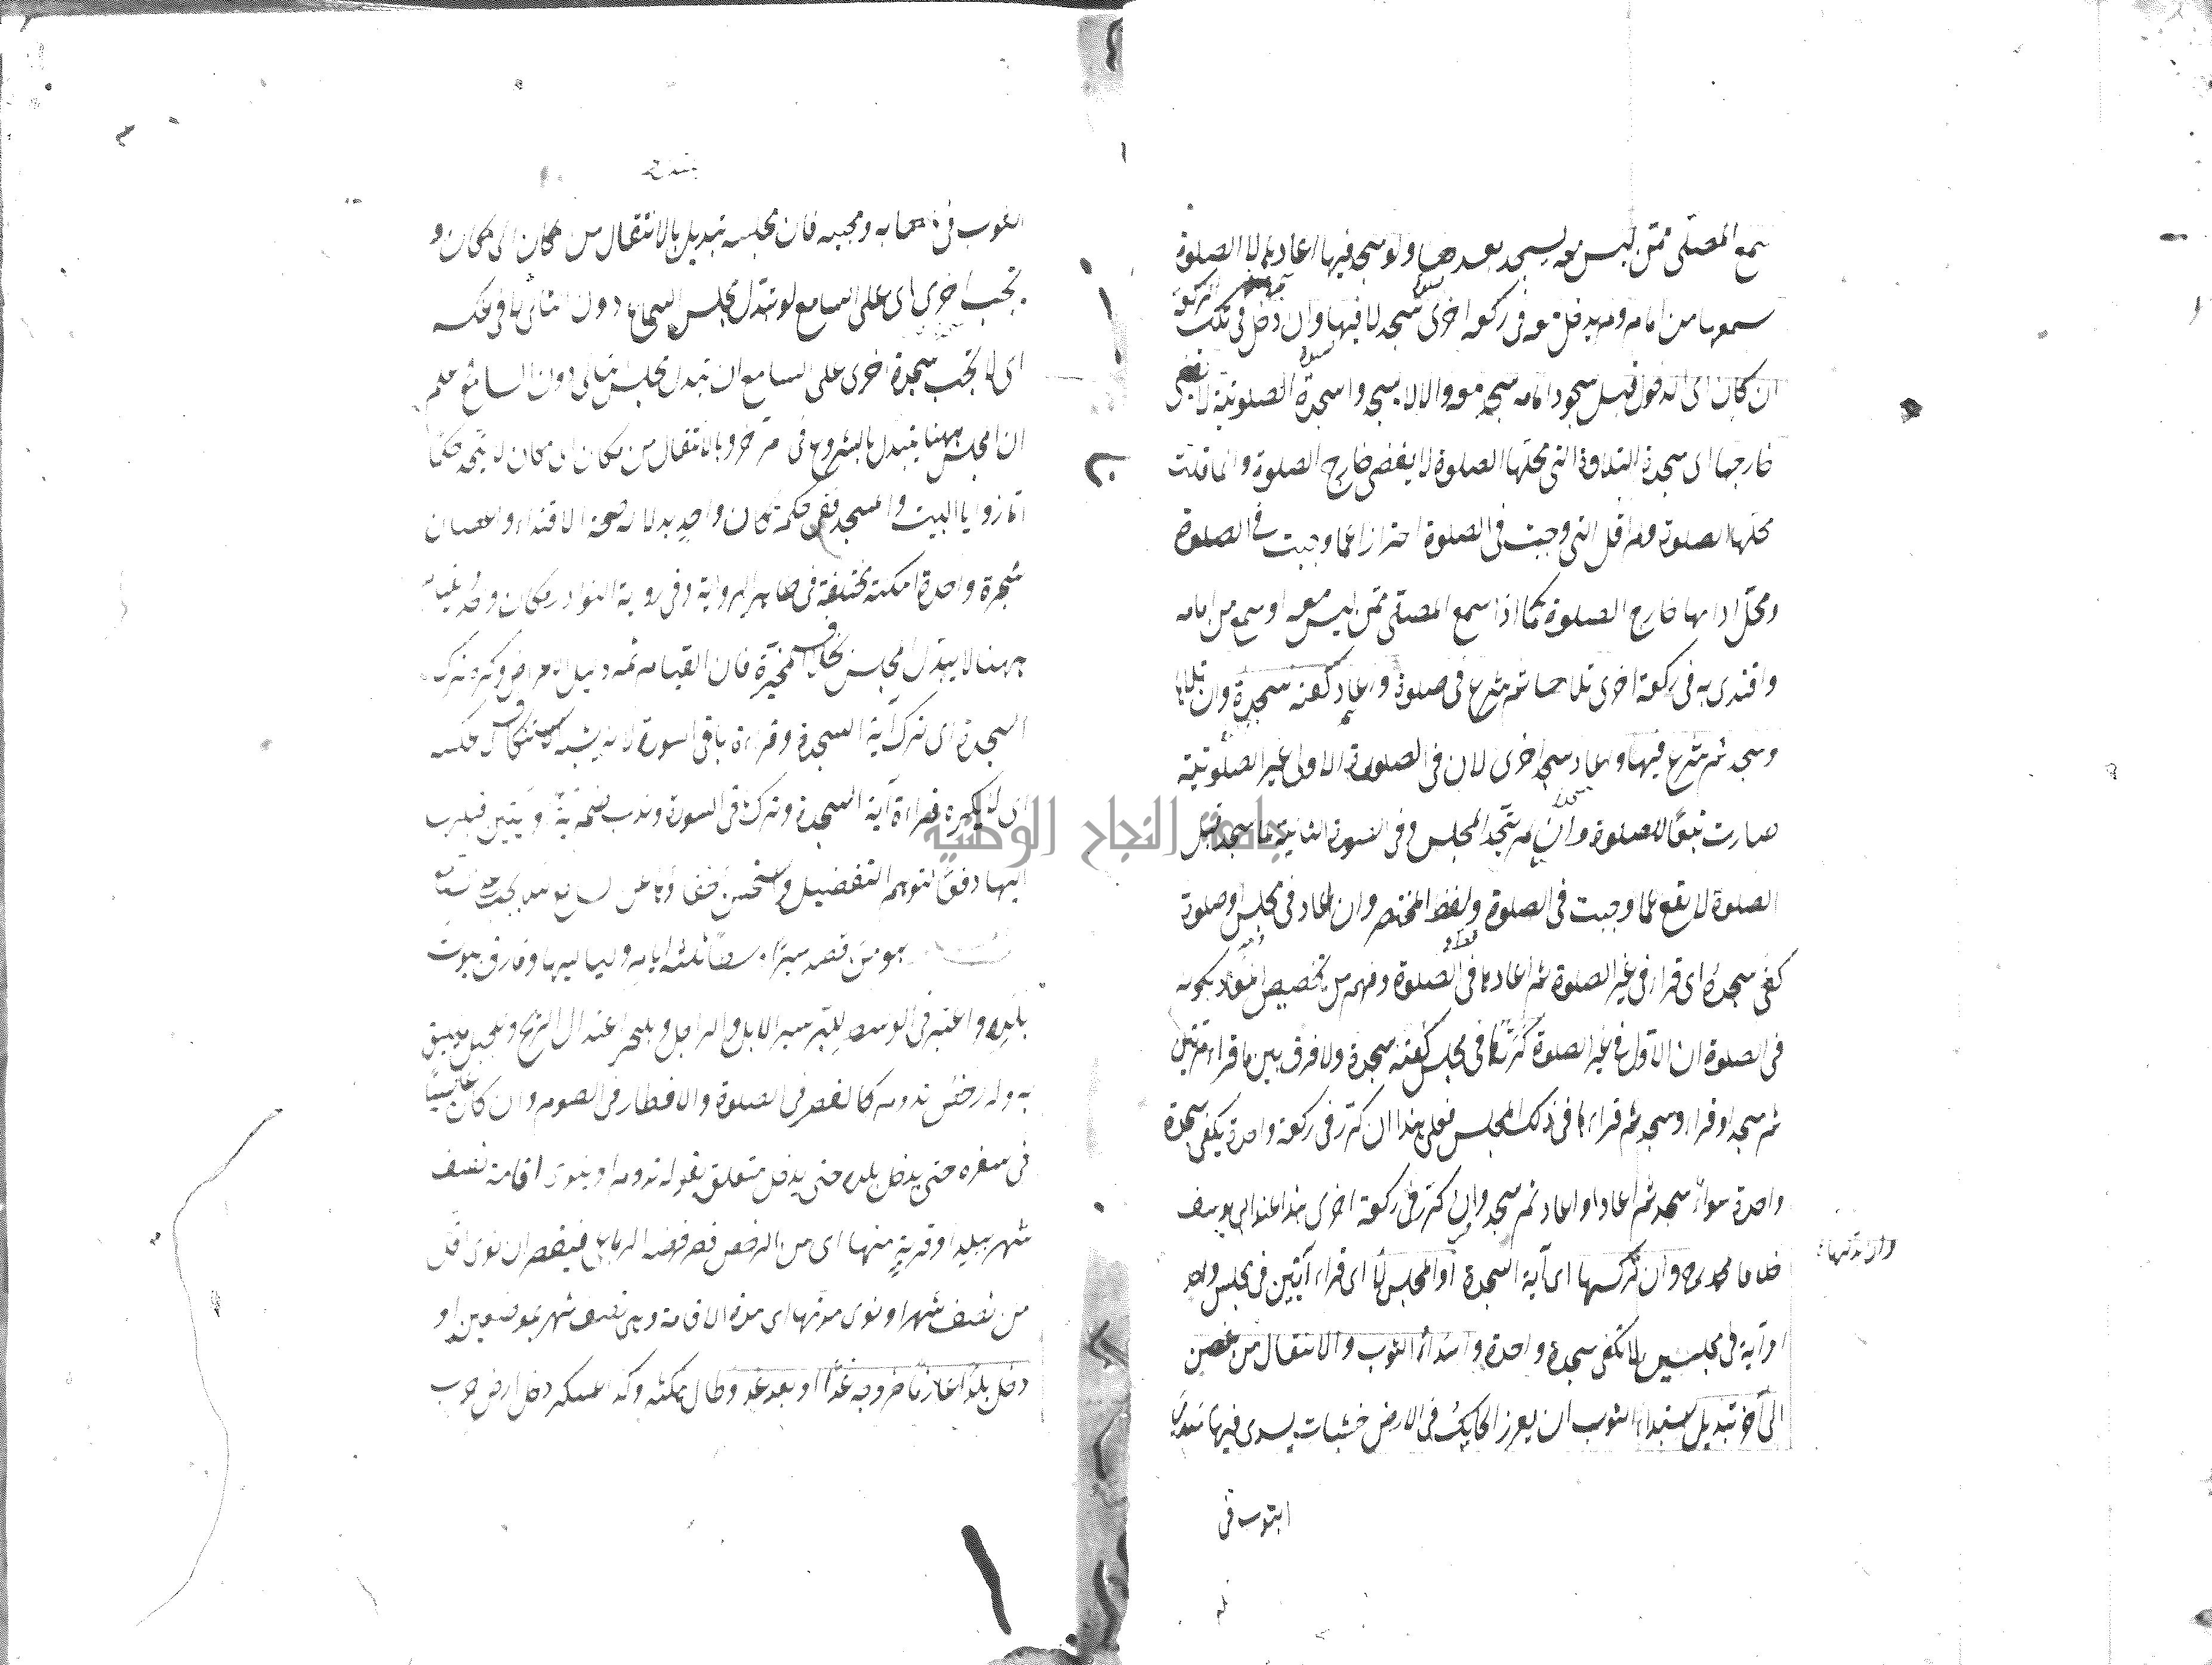 سمع المصلى ممن ليس معه يسجد بعدها ولو سجد فيها اعادها لا الصلوة
سمعها من امامه ولم يدخل معه فى ركعة اخرى سجد لا فيها وان دخل فى تلك الركعة
ان كان اى الدخول قبل سجود امامه سجد معه والا لا يسجد والسجدة الصلوتية لا تقضى
خارجها اى سجدة التلاوة التى محلها الصلوة لا يقضى خارج الصلوة وانما قلت
محلها الصلوة ولم اقل التى وجبت فى الصلوة احترازا عما وجبت فى الصلوة
ومحل ادائها خارج الصلوة كما اذا سمع المصلى ممن ليس معه او سمع من امامه
واقتدى به فى ركعة اخرى تلاها ثم شرع فى صلوة واعاد كفته سجدة وان تلاها
وسجد ثم شرع فيها واعاد سجد اخرى لان فى الصلوة الاولى غير الصلوتية
صارت تبعا للصلوة وان لم يتحد المجلس وفى الصورة الثانية لما سجد قبل
الصلوة لا يقع عما وجبت فى الصلوة ولفظ المختصر وان اعاد فى مجلس او صلوة
كفى سجدة اى قراء فى غير الصلوة ثم اعادها فى الصلوة وفهم من تخصيص المعاد بكونه
فى الصلوة ان الاول فى غير الصلوة كررها فى مجلس كفته سجدة ولا فرق بين ما قراء مرتين
ثم سجد او قراء وسجد ثم قراءها فى ذلك المجلس فعلى هذا ان كرر فى ركعة واحدة يكفى سجدة
واحدة سواء سجد ثم اعاد او اعاد ثم سجد وان كرر فى ركعة اخرى هذا عند ابى يوسف
خلافا لمحمد وان بدلها اى آية السجدة او المجلس لا اى قراء آيتين فى مجلس واحد
وان بدلها
او آية فى مجلسين لا تكفى سجدة واحدة واسداء الثوب والانتقال من غصن
الى آخر تبديل اسداء الثوب ان يغرز الحايك فى الارض خشبات يسدى فيها سدى
الثوب فى
الثوب فى ذهابه ومجيئه فان مجلسه يتبدل بالانتقال من مكان الى مكان و
تجب اخرى اى على السامع لو تبدل مجلس السماع دون التالى لا فى عكسه
اى لا تجب سجدة اخرى على السامع ان تبدل مجلس التالى دون السامع اعلم
ان المجلس ههنا يتبدل بالشروع فى امر آخر وبالانتقال من مكان الى مكان لا يتحد حكما
اما زوايا البيت والمسجد ففى حكم مكان واحد بدلالة صحة الاقتداء واغصان
شجرة واحدة امكنة مختلفة فى ظاهر الرواية وفى رواية النوادر مكان واحد
ههنا لا يبدل المجلس بخلاف المخيرة فان القيام ثمه دليل الاعراض وكره ترك
السجدة اى ترك آية السجدة وقراءة باقى السورة لانه يشبه الاستنكاف لا عكسه
اى لا يكره قراءة آية السجدة وترك باقى السورة وندب ضم آية او آيتين قبلها
اليها دفعا لتوهم التفضيل واستحسن اخفاءها عن السامع
هو من قصد سيرا وسطا ثلثة ايام ولياليها وفارق بيوت
بلده واعتبر فى الوسط للبر سير الابل والراجل وللبحر اعتدال الريح وللجبل ما يليق
به وله رخص تدوم كالقصر فى الصلوة والافطار فى الصوم وان كان عاصيا
فى سفره حتى يدخل بلده حتى يدخل متعلق بقوله تدوم او ينوى اقامة نصف
شهر ببلد او قرية منها اى من الرخص قصر فرضه الرباعى فيقصر ان نوى اقل
من نصف شهر او نوى مدتها اى مدة الاقامة وهى نصف شهر بموضعين او
دخل بلدا عازما خروجه غدا او بعد غد وطال مكثه وكذا عسكر دخل ارض حرب
جامعة النجاح الوطنية